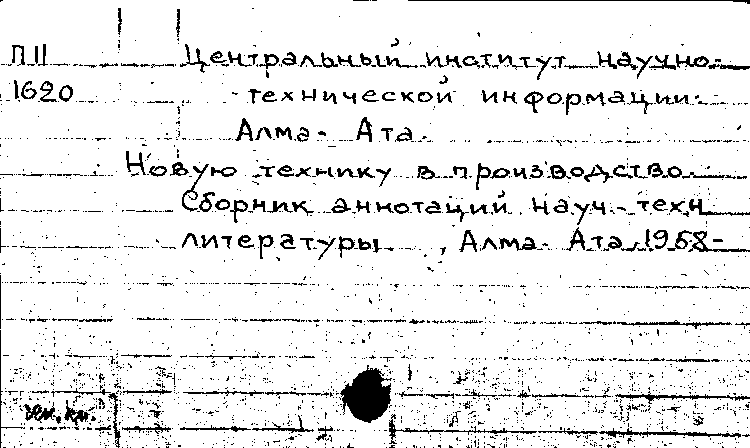 П II Центральный институт научно-
1620 технической информации.
Алма-Ата.
Новую технику в производство.
Сборник аннотаций науч.-техн
литературы. , Алма-Ата, 1958-